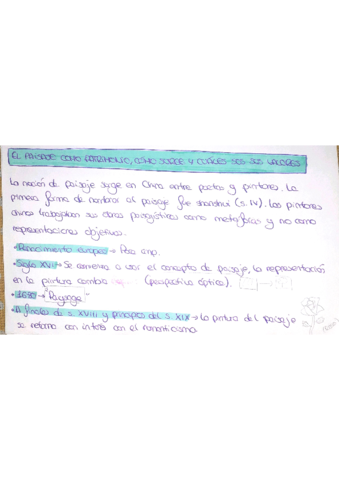 EL PAISAJE COMO PATRIMONIO, CÓMO SURGE Y CUÁLES SON SUS VALORES
La noción de paisaje surge en China entre poetas y pintores. La
primera forma de nombrar al paisaje fue shanshui (s. IV). Los pintores
chinos trabajaban sus obras paisajísticas como metáforas y no como
representaciones objetivas.
• Renacimiento europeo → Paesaggio
• Siglo XVII → Se comienza a usar el concepto de paisaje, la representación
en la pintura cambia (perspectiva óptica).
• 1680 → "Paysage"
• A finales de s. XVIII y principios del s. XIX → La pintura del paisaje
se retoma con interés con el romanticismo.